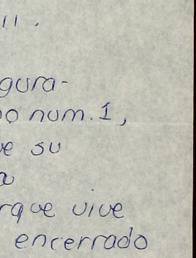 11.
gura-
o num. 1,
e su
a
rque vive
encerrado